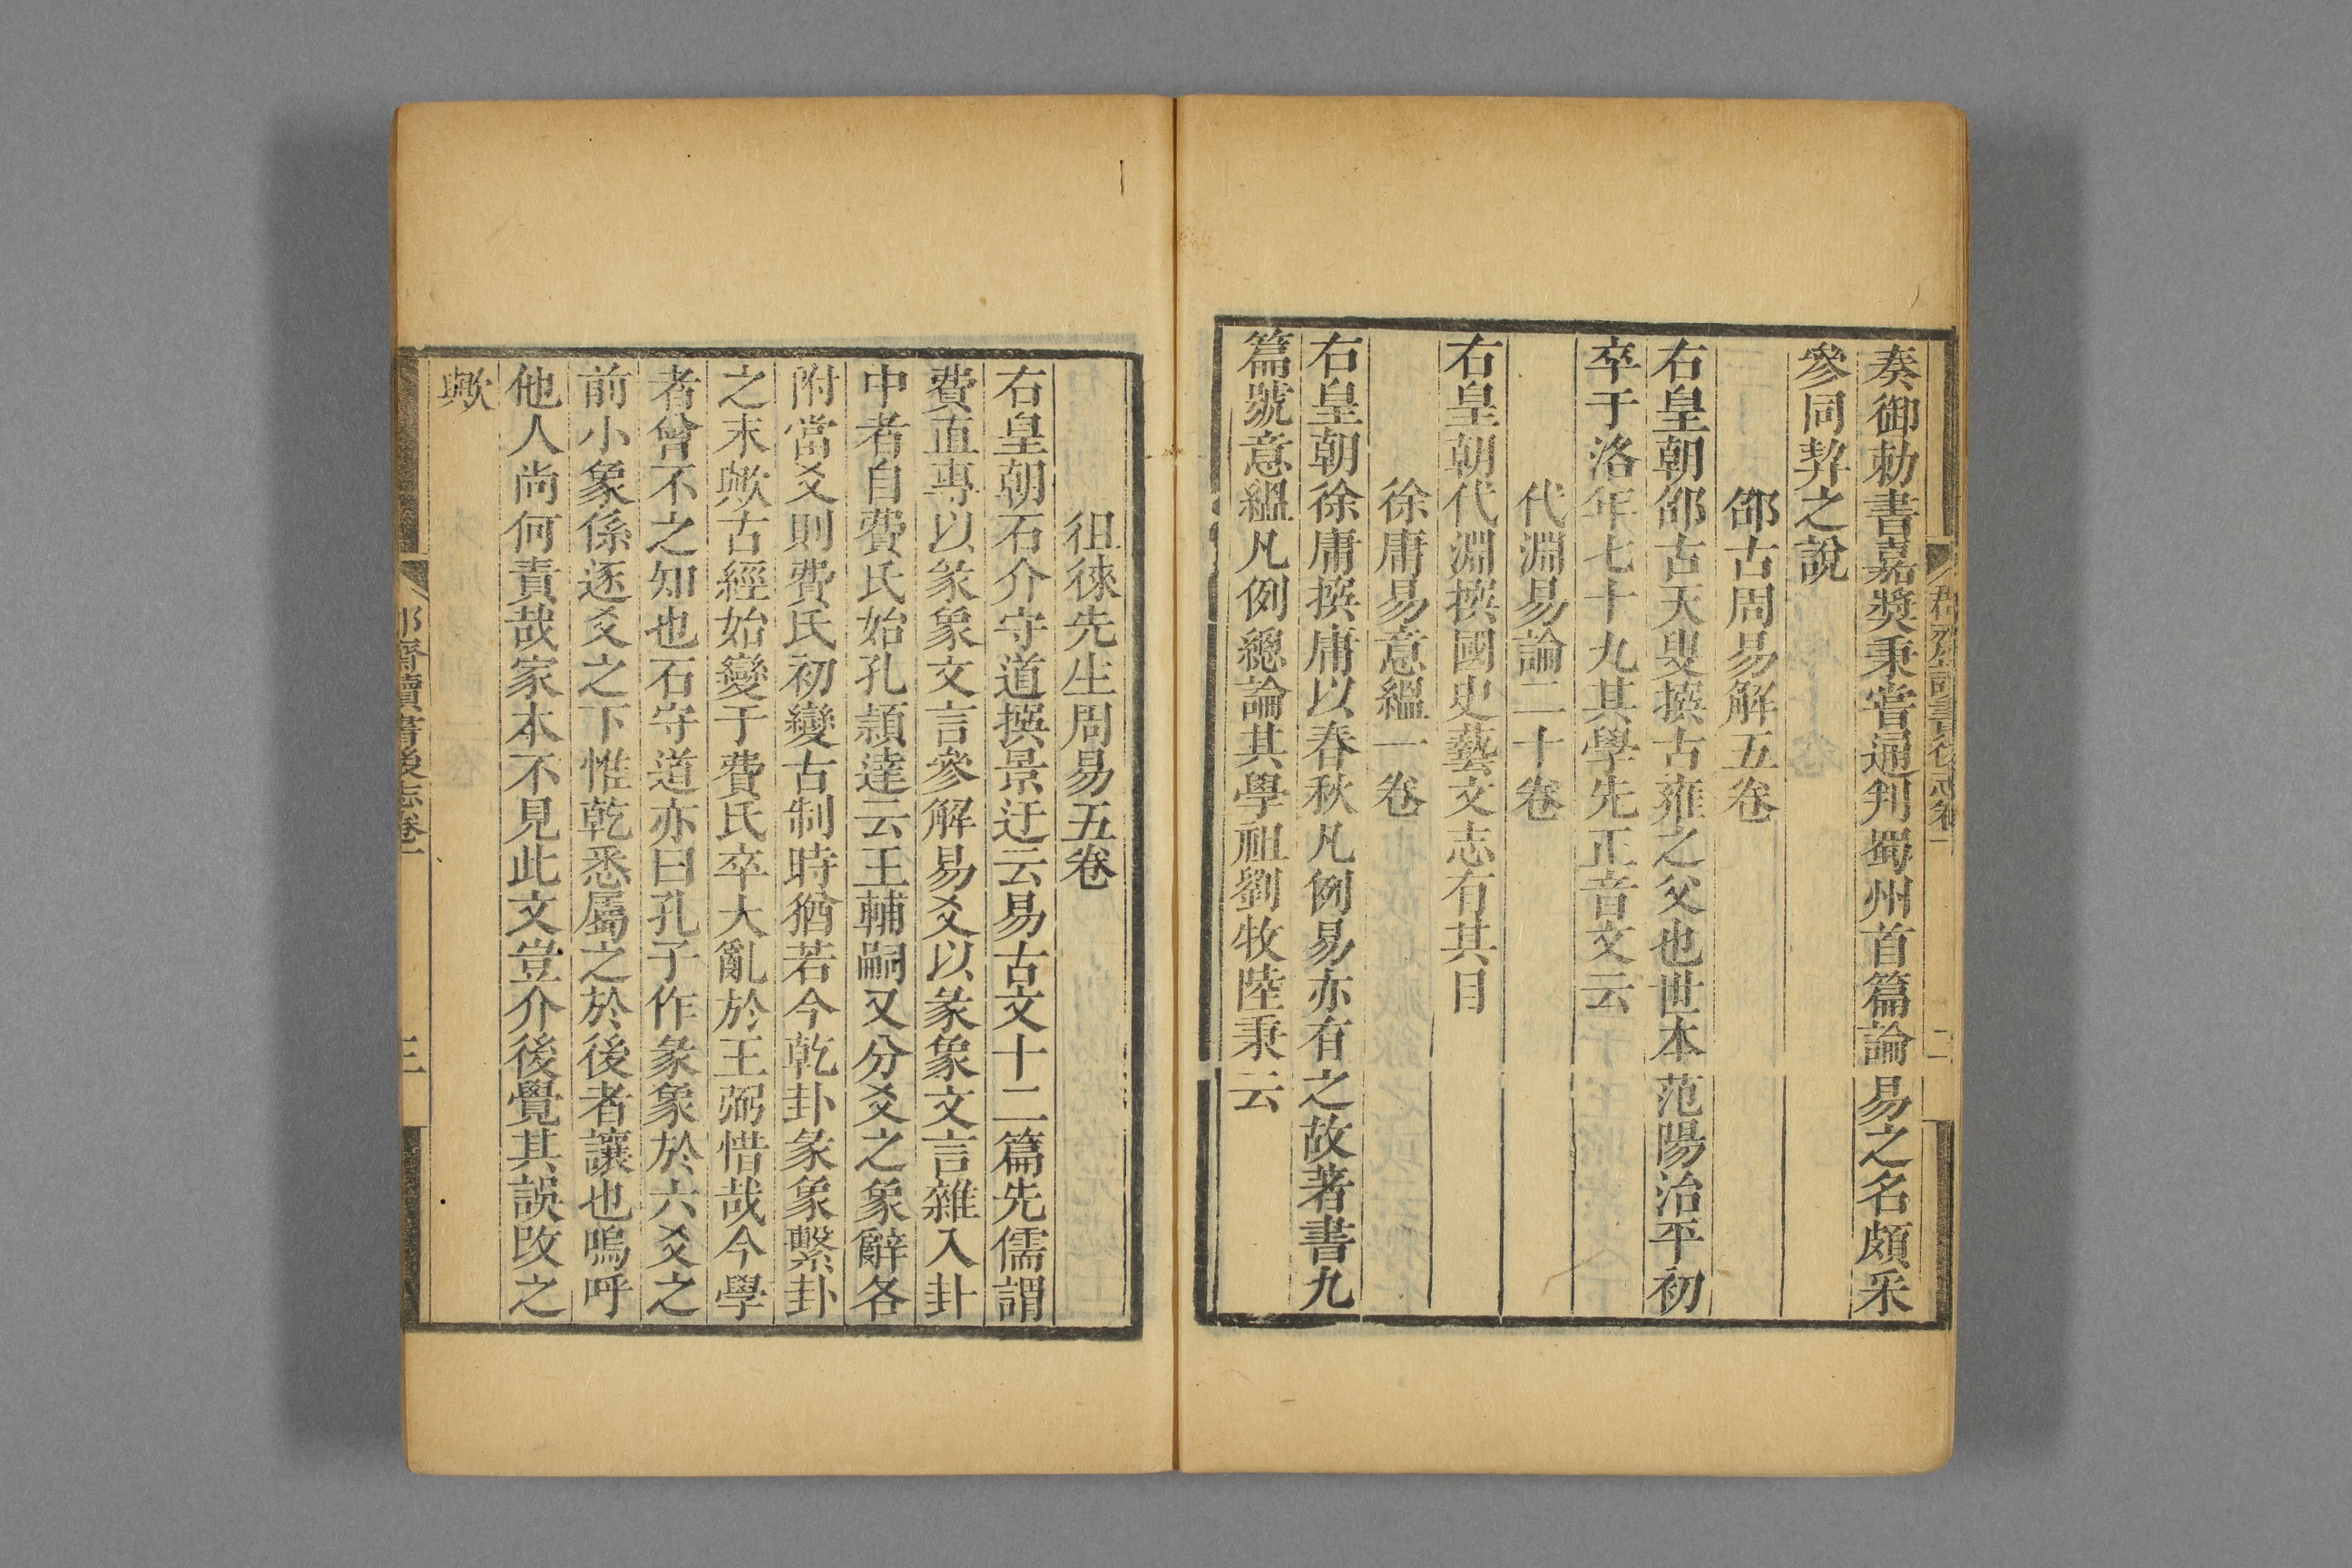 奏御勅書嘉奬秉嘗通判蜀州首篇論易之名頗采
參同契之說
邵古周易解五卷
右皇朝邵古天叟撰古雍之父也世本范陽治平初
卒于洛年七十九其學先正音文云
代淵易論二十卷
右皇朝代淵撰國史藝文志有其目
徐庸易意緼一卷
右皇朝徐庸撰庸以春秋凡例易亦有之故著書九
篇號意緼凡例總論其學祖劉牧陸秉云
徂徠先生周易五卷
右皇朝石介守道撰景迂云易古文十二篇先儒謂
費直專以彖象文言參解易爻以彖象文言雜入卦
中者自費氏始孔頴達云王輔嗣又分爻之象辭各
附當爻則費氏初變古制時猶若今乾卦彖象繫卦
之末歟古經始變于費氏卒大亂於王弼惜哉今學
者曾不之知也石守道亦曰孔子作彖象於六爻之
前小象係逐爻之下惟乾悉屬之於後者讓也嗚呼
他人尚何責哉家本不見此文豈介後覺其誤改之
歟
郡齋讀書後志卷一
三
郡齋讀書後志卷一
二